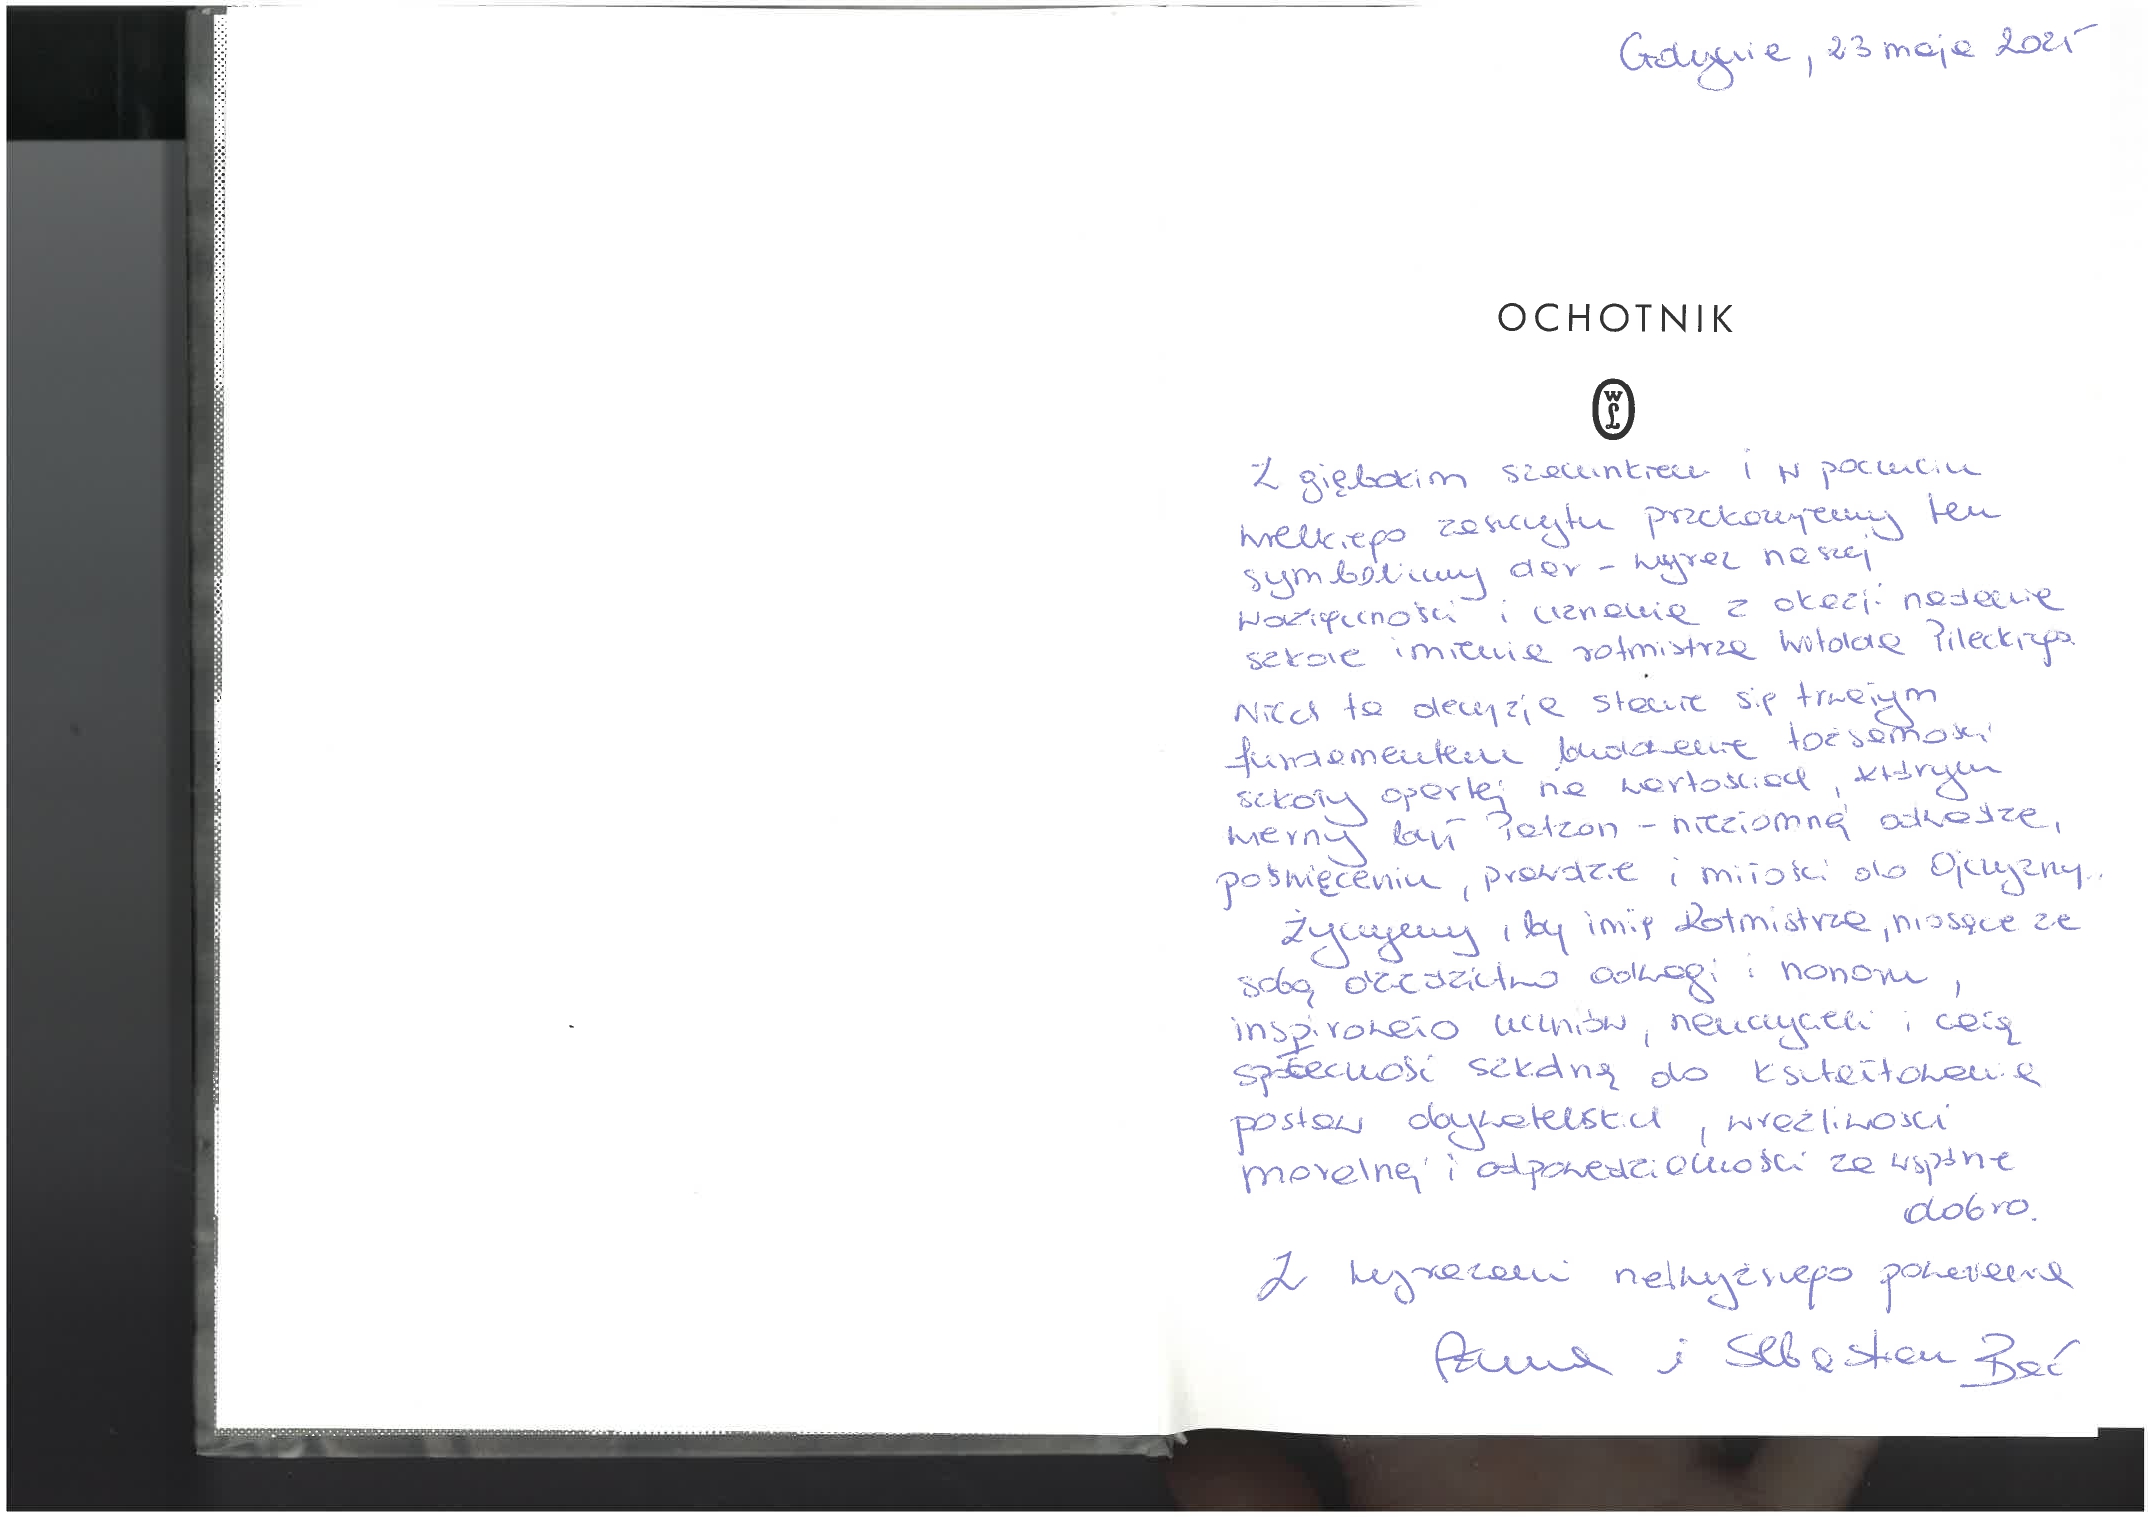 Gdynia, 23 maja 2025
OCHOTNIK
W
L
Z głębokim szacunkiem i w poczuciu
wielkiego zaszczytu przekazujemy ten
symboliczny dar – wyraz naszej
wdzięczności i uznania z okazji nadania
szkole imienia rotmistrza Witolda Pileckiego.
Niech ta decyzja stanie się trwałym
fundamentem budowania tożsamości
szkoły opartej na wartościach, którym
wierny był Patron – niezłomnej odwadze,
poświęceniu, prawdzie i miłości do Ojczyzny.
Życzymy, by imię Rotmistrza, niosące ze
sobą dziedzictwo odwagi i honoru,
inspirowało uczniów, nauczycieli i całą
społeczność szkolną do kształtowania
postaw obywatelskich, wrażliwości
moralnej i odpowiedzialności za wspólne
dobro.
Z wyrazami najwyższego poważania
Anna i Sebastian Bać